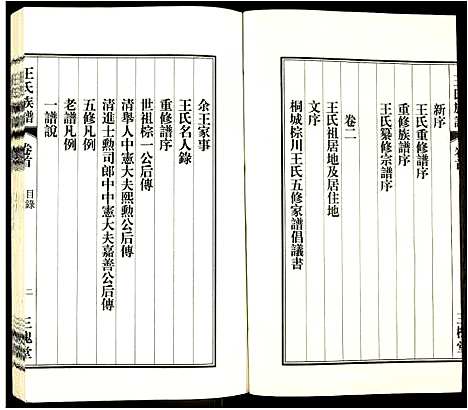 新序
王氏重修譜序
重修族譜序
王氏纂修宗譜序
卷二
王氏祖居地及居住地
文序
桐城棕川王氏五修家譜倡議書
余王家事
王氏名人錄
重修譜序
世祖棕一公后傳
清舉人中憲大夫熙勲公后傳
清進士勲司郎中中憲大夫嘉善公后傳
五修凡例
老譜凡例
一譜說
王氏族譜
卷首
目錄
二
三槐堂